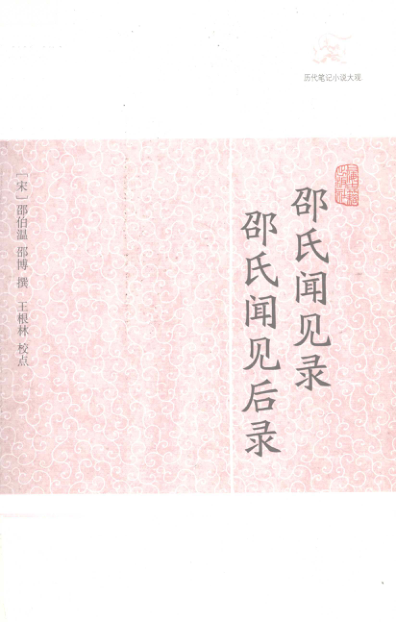 历代笔记小说大观
邵氏闻见录
邵氏闻见后录
［宋］邵伯温 邵博 撰 王根林 校点